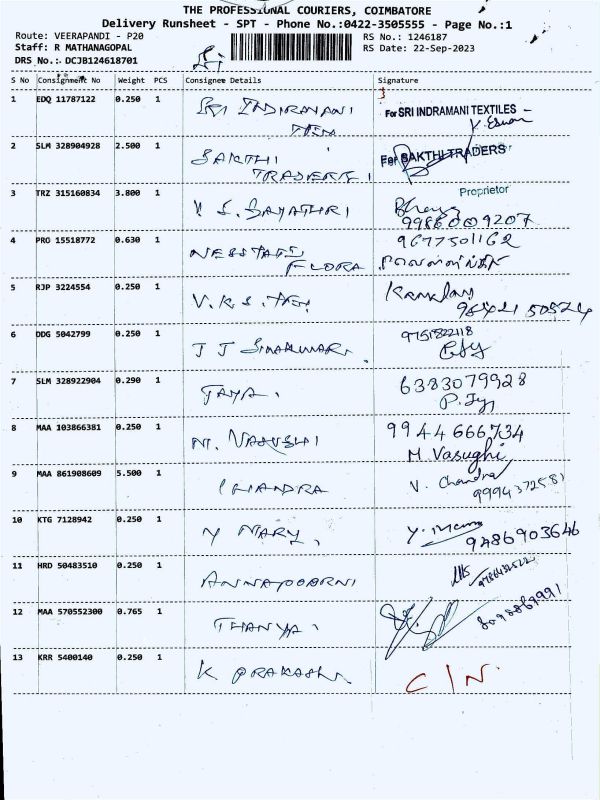 THE PROFESSIONAL COURIERS, COIMBATORE
Delivery Runsheet - SPT - Phone No.:0422-3505555 - Page No.:1
Route: VEERAPANDI - P20 RS No.: 1246187
Staff: R MATHANAGOPAL RS Date: 22-Sep-2023
DRS No.: DCJB124618701
S No Consignment No Weight PCS Consignee Details Signature
1 EDQ 11787122 0.250 1 SRI INDIRANANI For SRI INDRAMANI TEXTILES
TEX K. Eswar
2 SLM 328904928 2.500 1 SAKTHI For SAKTHI TRADERS
TRADERS
Proprietor
3 TRZ 315160834 3.800 1 V S. GAYATHRI
9986009207
4 PRO 15518772 0.630 1 9677501162
FLORA
5 RJP 3224554 0.250 1 V.K.S. TEX
96421 50524
6 DDG 5042799 0.250 1 J J 9751822118
7 SLM 328922904 0.290 1 JAYA. 6383079928
8 MAA 103866381 0.250 1 M. VASUGHI 9944666734
M Vasughi
9 MAA 861908609 5.500 1 CHANDRA V. Chandra
9994372581
10 KTG 7128942 0.250 1 Y MARY,
9486903646
11 HRD 50483510 0.250 1 ANNAPOORNI
12 MAA 570552300 0.765 1 THANYA.
13 KRR 5400140 0.250 1 K PRAKASH. C/N.